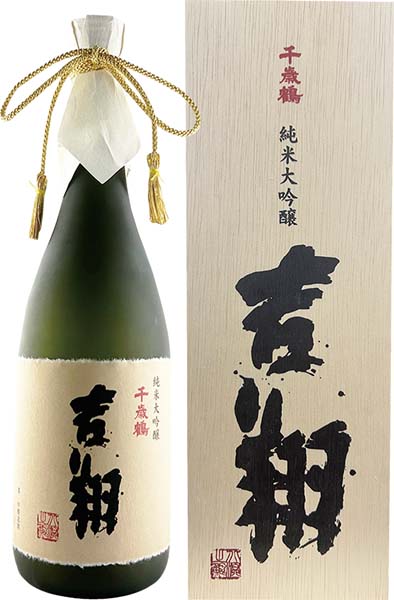 純米大吟醸
千歳鶴
吉翔
千歳鶴
純米大吟醸
吉翔